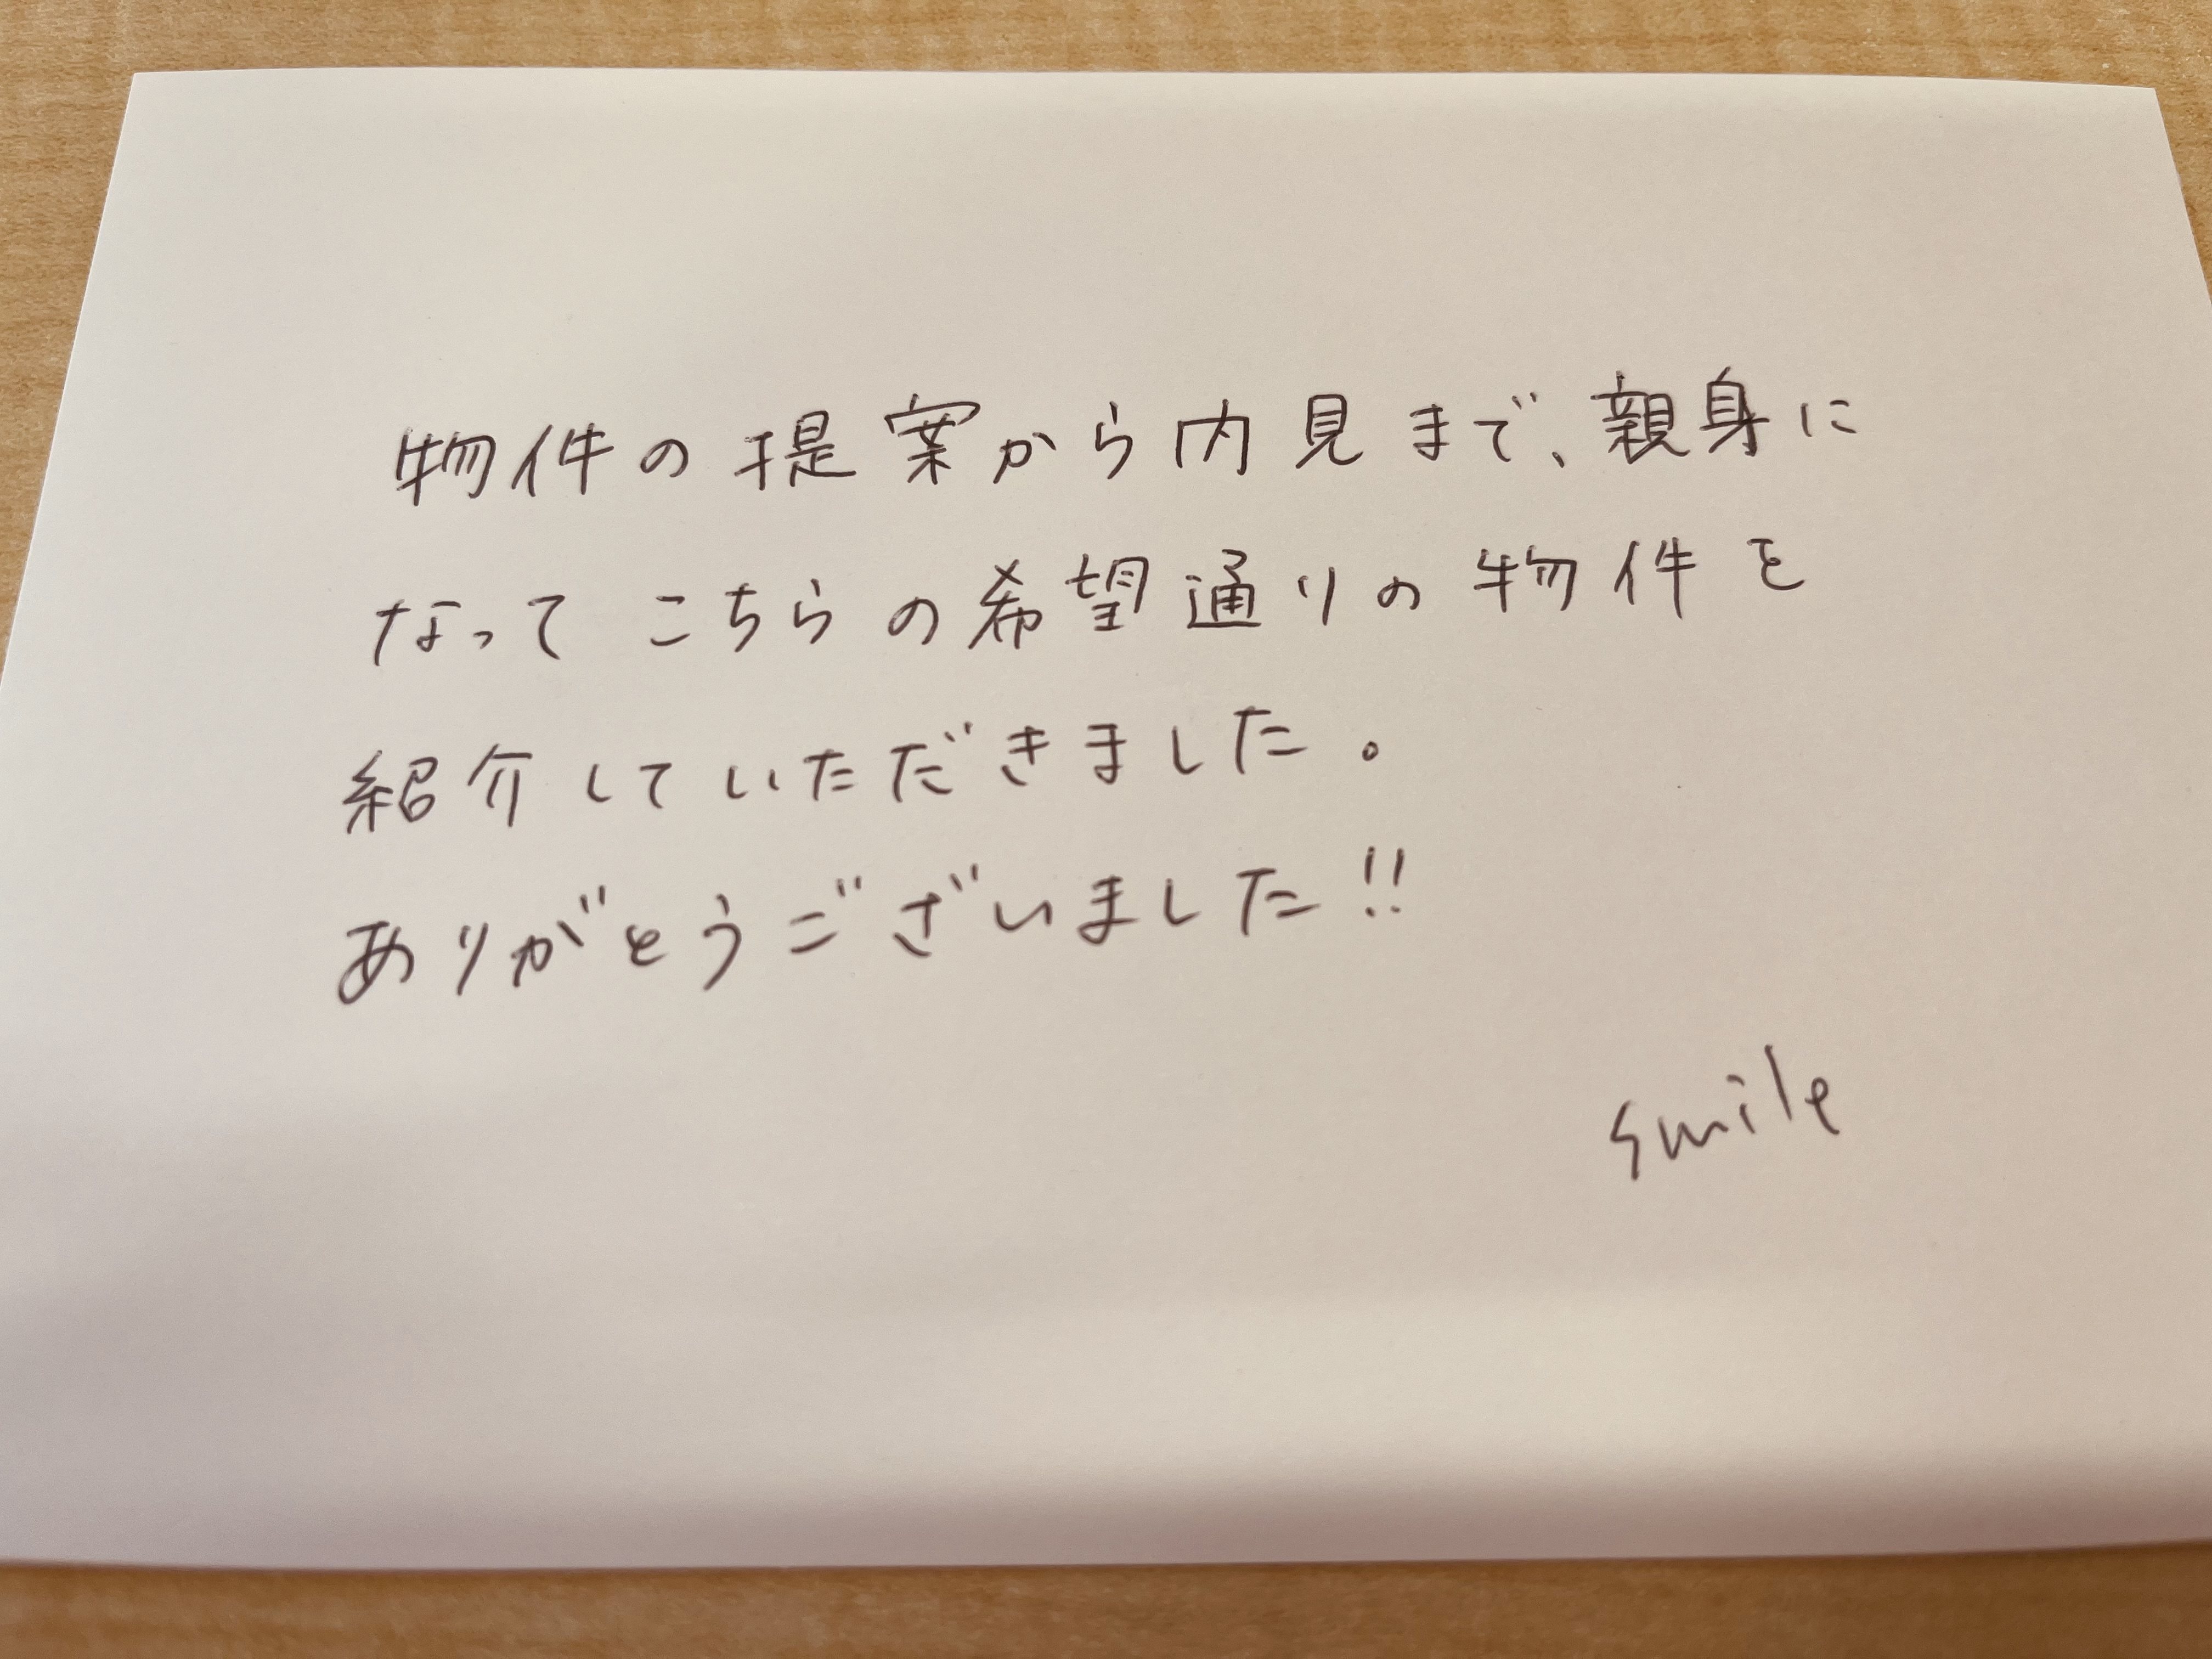 物件の提案から内見まで、親身に
なってこちらの希望通りの物件を
紹介していただきました。
ありがとうございました!!
smile